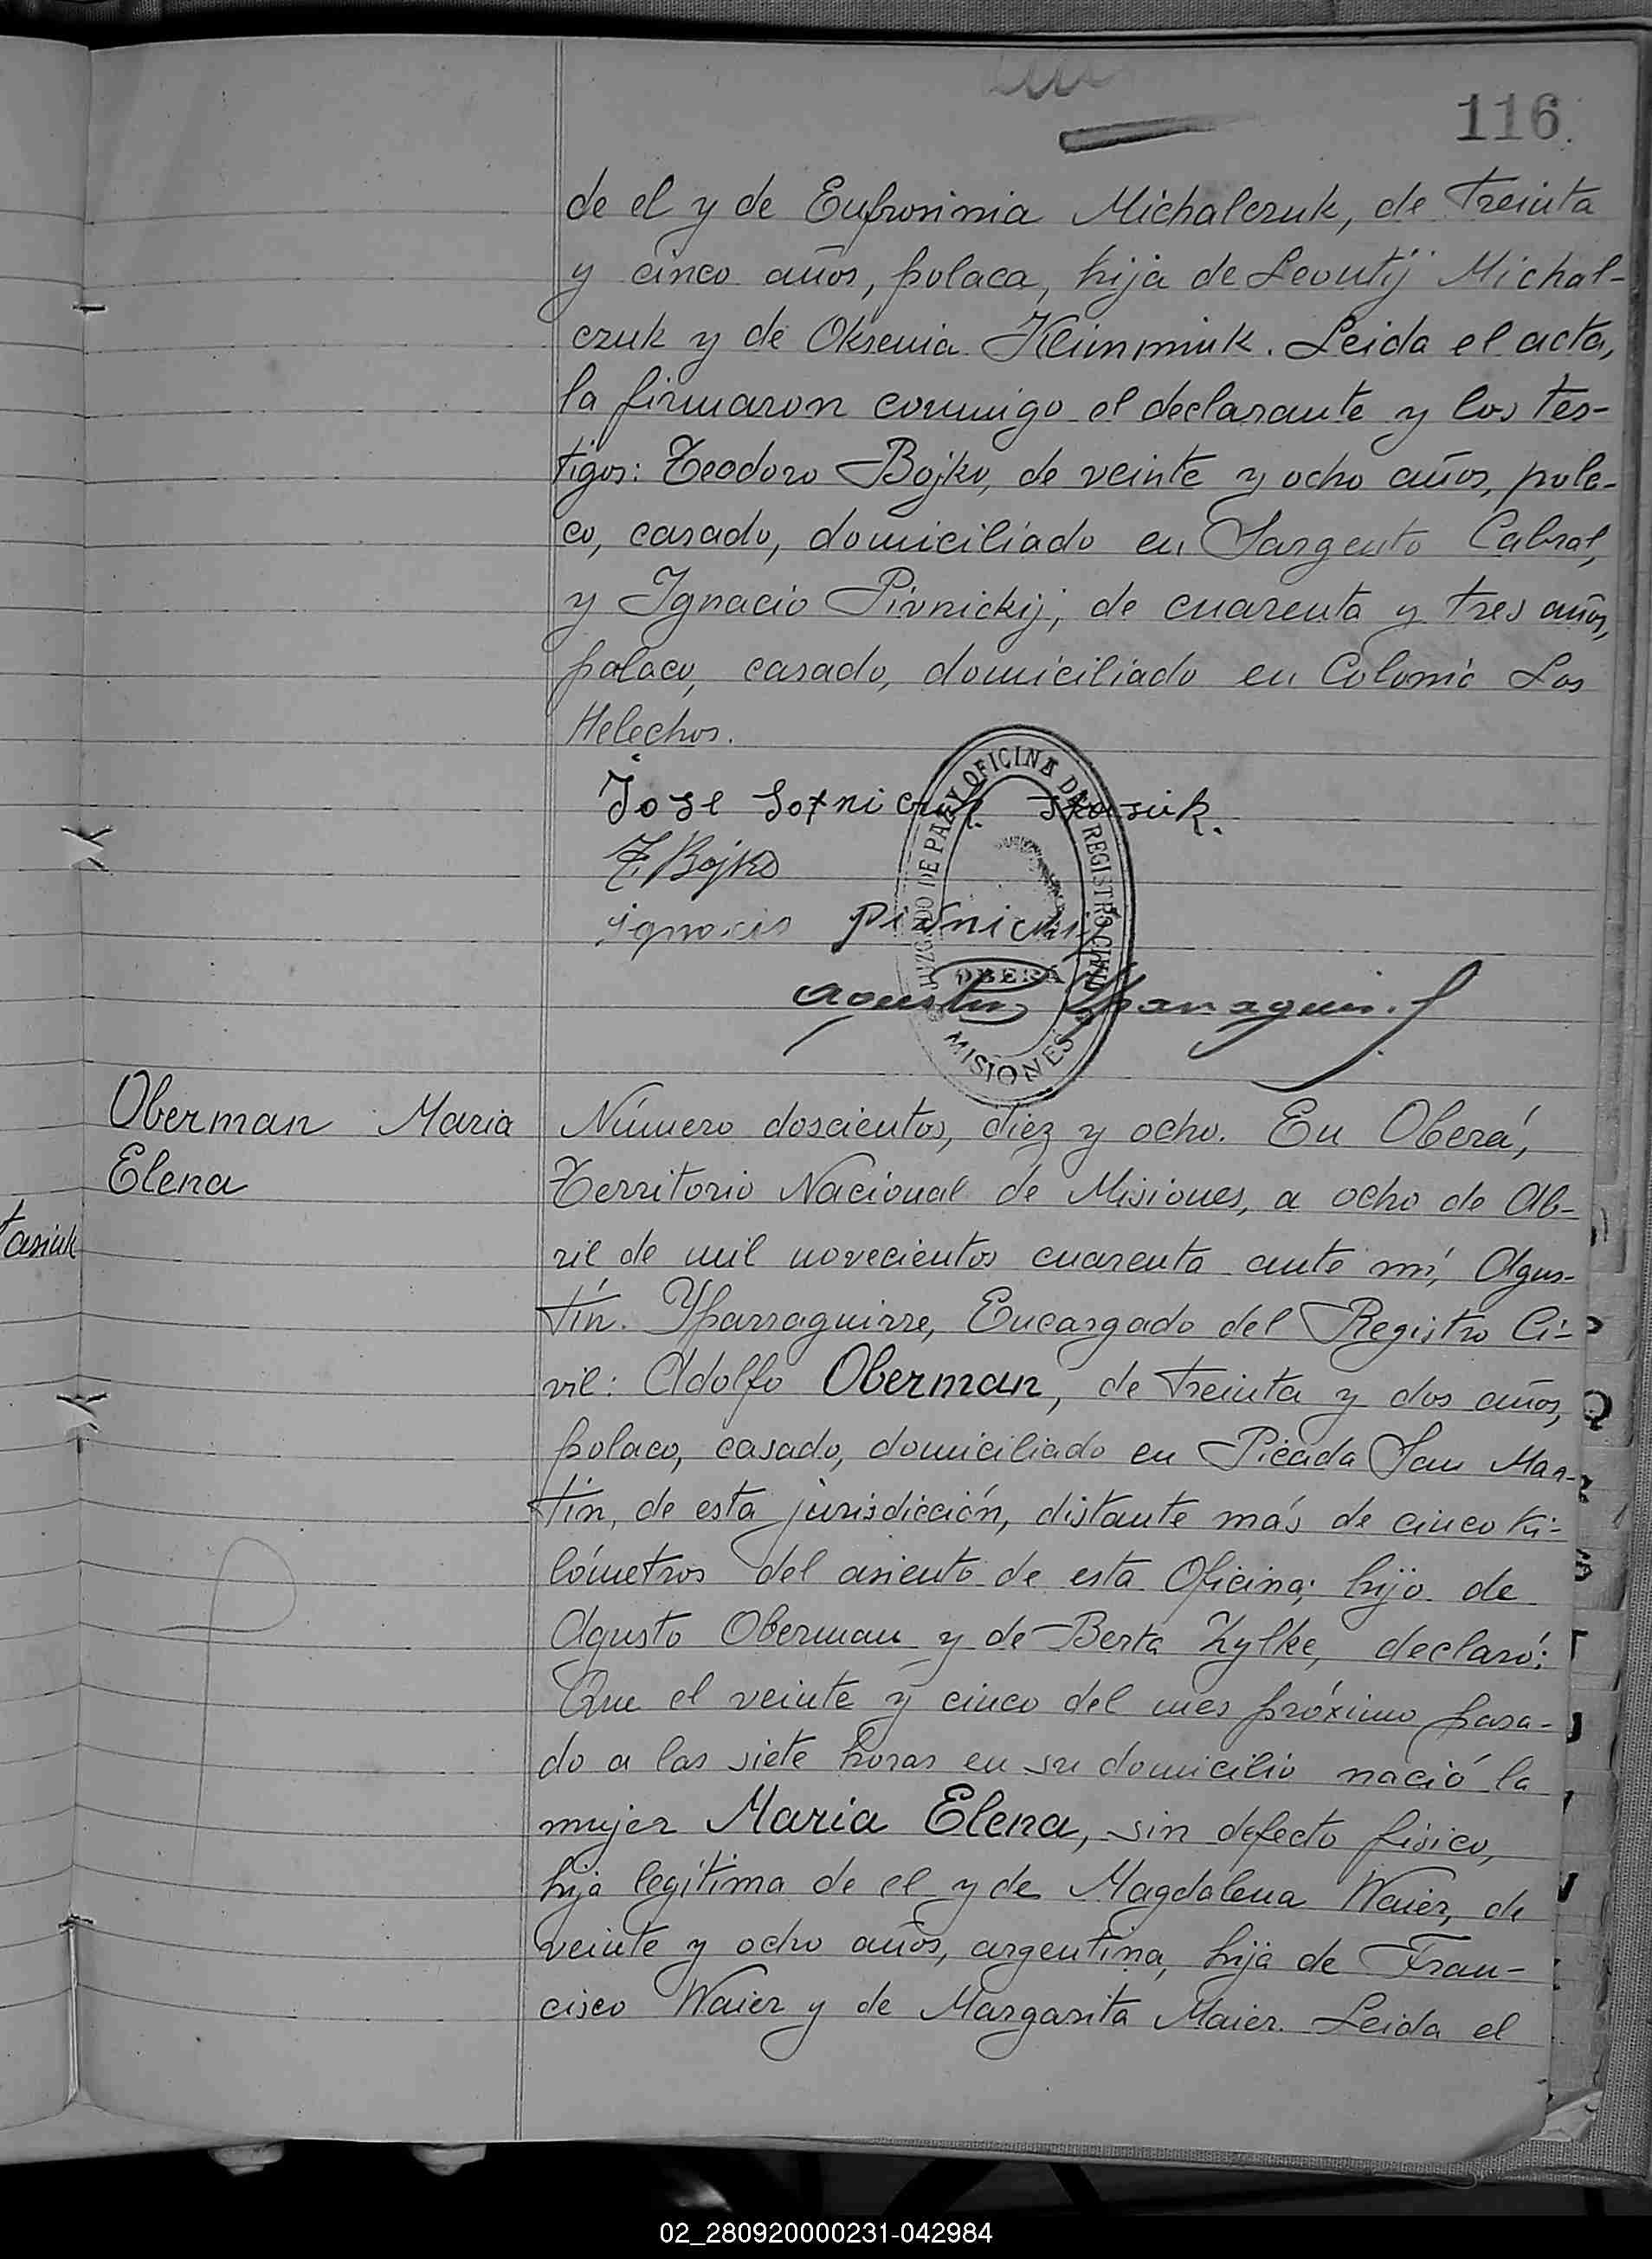 116.
de el y de Eufrosinia Michalczuk, de treinta
y cinco años, polaca, hija de Leontij Michal-
czuk y de Oksenia Klimmiuk. Leida el acta,
la firmaron conmigo el declarante y los tes-
tigos: Teodoro Bojko, de veinte y ocho años, pola-
co, casado, domiciliado en Sargento Cabral,
y Ignacio Pivnickij, de cuarenta y tres años,
polaco, casado, domiciliado en Colonia Los
Helechos.
Jose Sotniczuk
T. Bojko
Ignacio Pivnickij
JUZGADO DE PAZ Y OFICINA DEL REGISTRO CIVIL
OBERA
MISIONES
Oberman Maria
Elena
tasiuk
Número doscientos, diez y ocho. En Oberá,
Territorio Nacional de Misiones, a ocho de Ab-
ril de mil novecientos cuarenta ante mí, Agus-
tín. Yparraguirre, Encargado del Registro Ci-
vil: Adolfo Oberman, de treinta y dos años,
polaco, casado, domiciliado en Picada San Mar-
tín, de esta jurisdicción, distante más de cinco ki-
lómetros del asiento de esta Oficina; hijo de
Agusto Oberman y de Berta Zylke, declaró:
Que el veinte y cinco del mes próximo pasa-
do a las siete horas en su domicilio nació la
mujer Maria Elena, sin defecto físico,
hija legítima de el y de Magdalena Waier, de
veinte y ocho años, argentina, hija de Fran-
cisco Waier y de Margarita Maier. Leida el
02_280920000231-042984